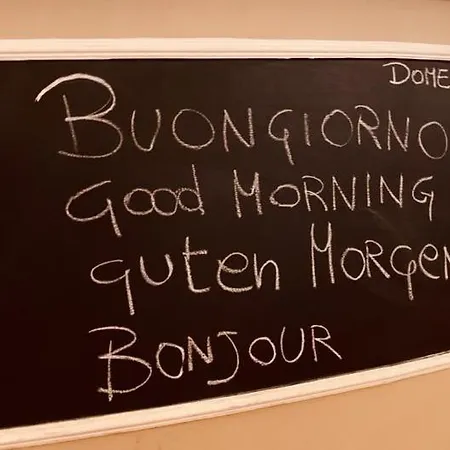 DOME
BUONGIORNO
Good MORNING
guten MORGEN
BONJOUR